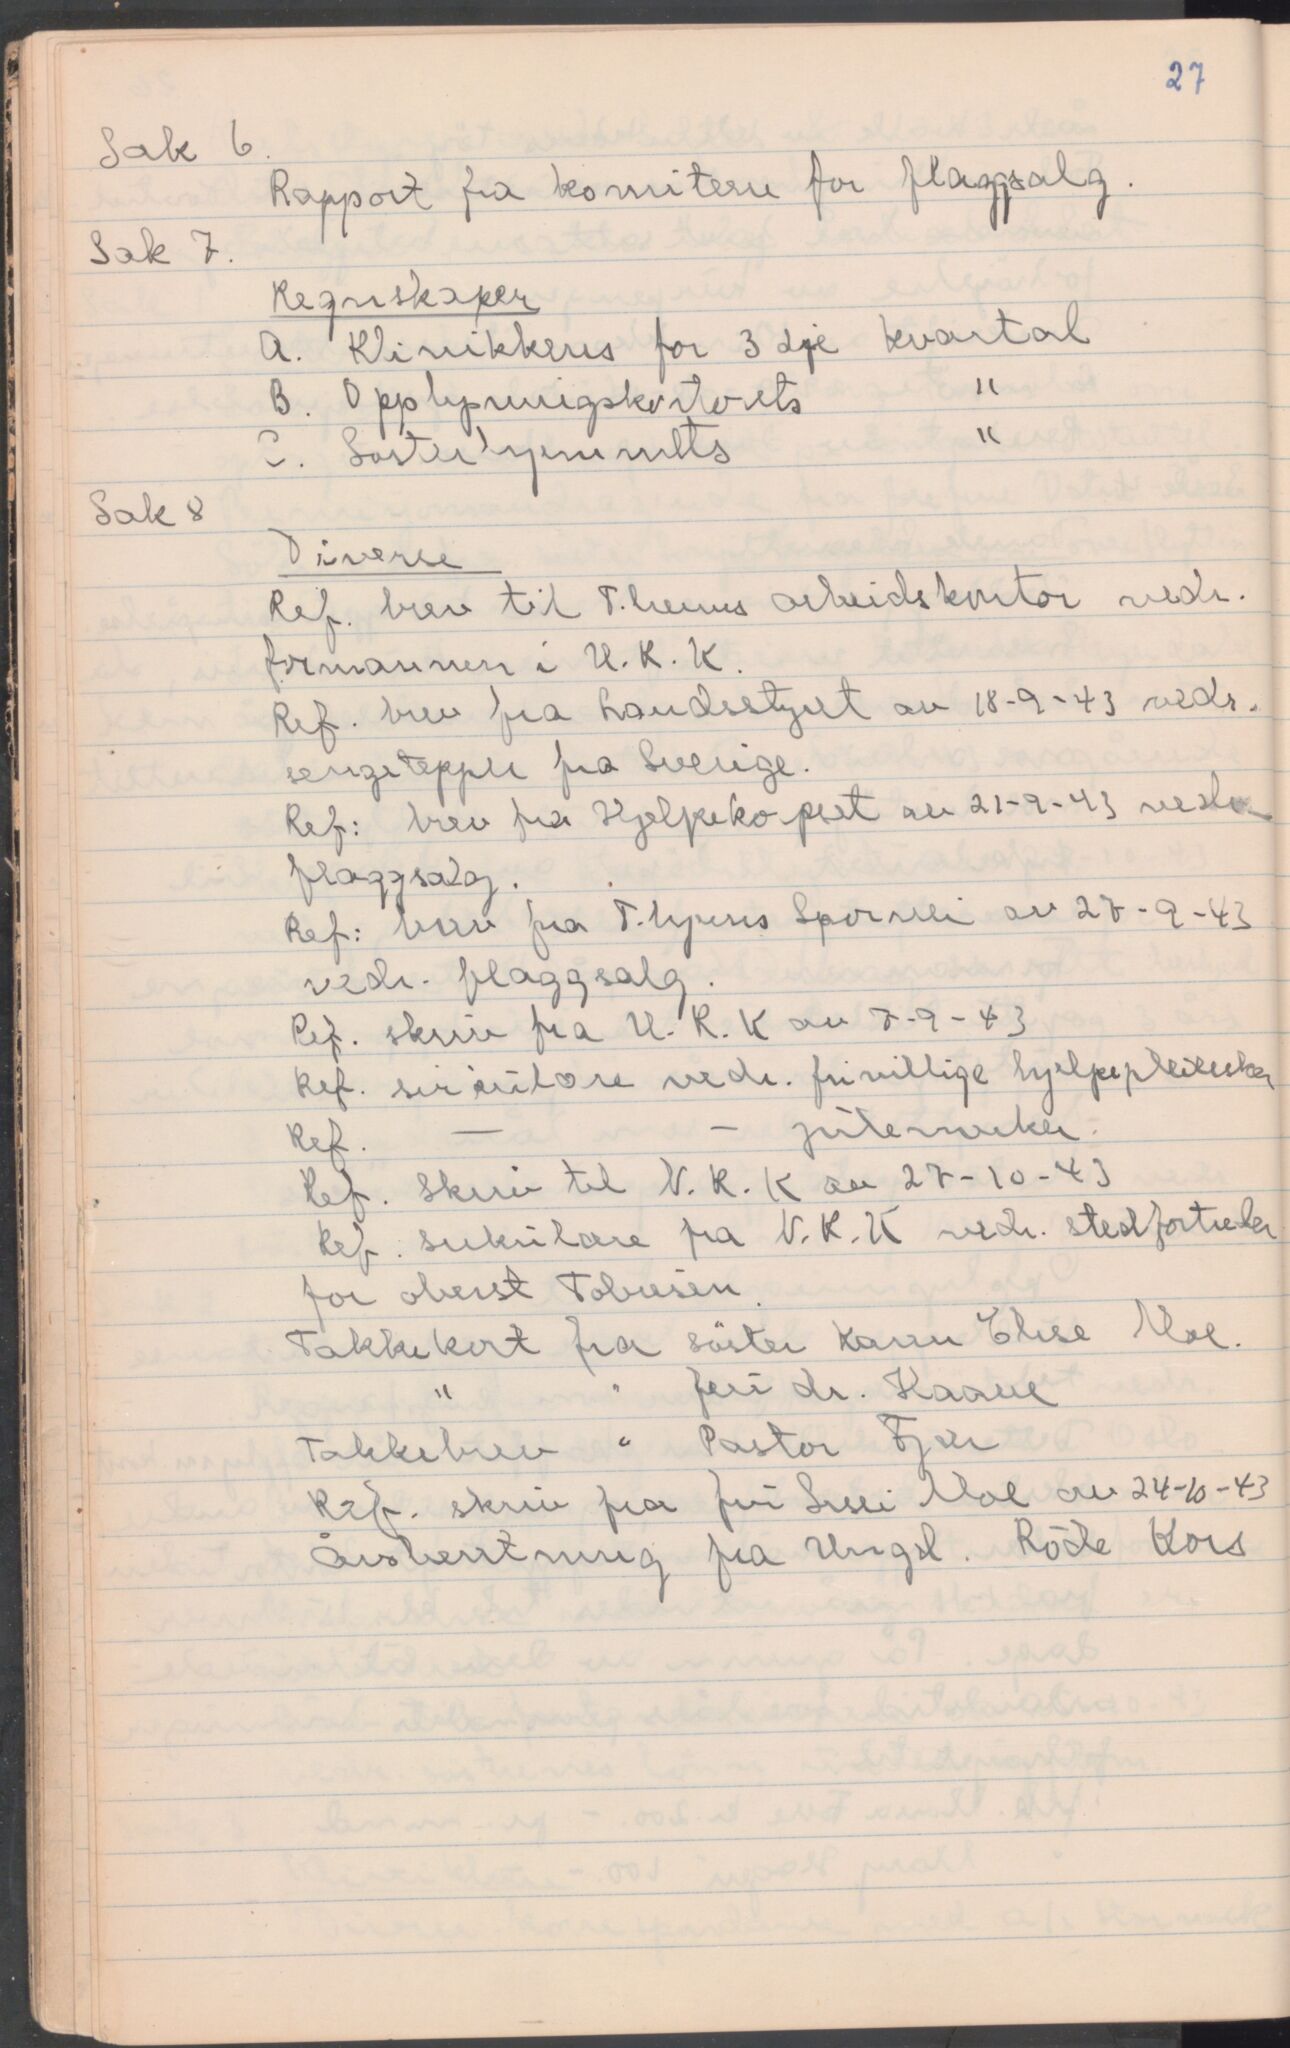 27
Sak 6.
Rapport fra komiteen for flaggsalg.
Sak 7.
Regnskaper
A. Klinikkens for 3 dje kvartal
B. Opplysningskontorets "
C. Søsterhjemmets "
Sak 8
Diverse
Ref. brev til T.hems arbeidskontor vedr.
formannen i U.R.K.
Ref. brev fra Landsstyret av 18-9-43 vedr.
sengetepper fra Sverige.
Ref: brev fra Hjelpekorpset av 21-9-43 vedr.
flaggsalg.
Ref: brev fra T.hjems Sporvei av 27-9-43
vedr. flaggsalg.
Ref. skriv fra U.R.K av 7-9-43
Ref. sirkulære vedr. frivillige hjelpepleiersker
Ref. — — julemerker.
Ref. Skriv til N.R.K av 27-10-43
Ref. sirkulære fra N.R.K vedr. stedfortreder
for oberst Tobiesen.
Takkekort fra söster Karen Elise Moe.
" " frü dr. Kaarel
Takkebrev " Pastor Fjær
Ref. skriv fra frü Moe av 24-10-43
Årsberetning fra Ungd. Röde Kors